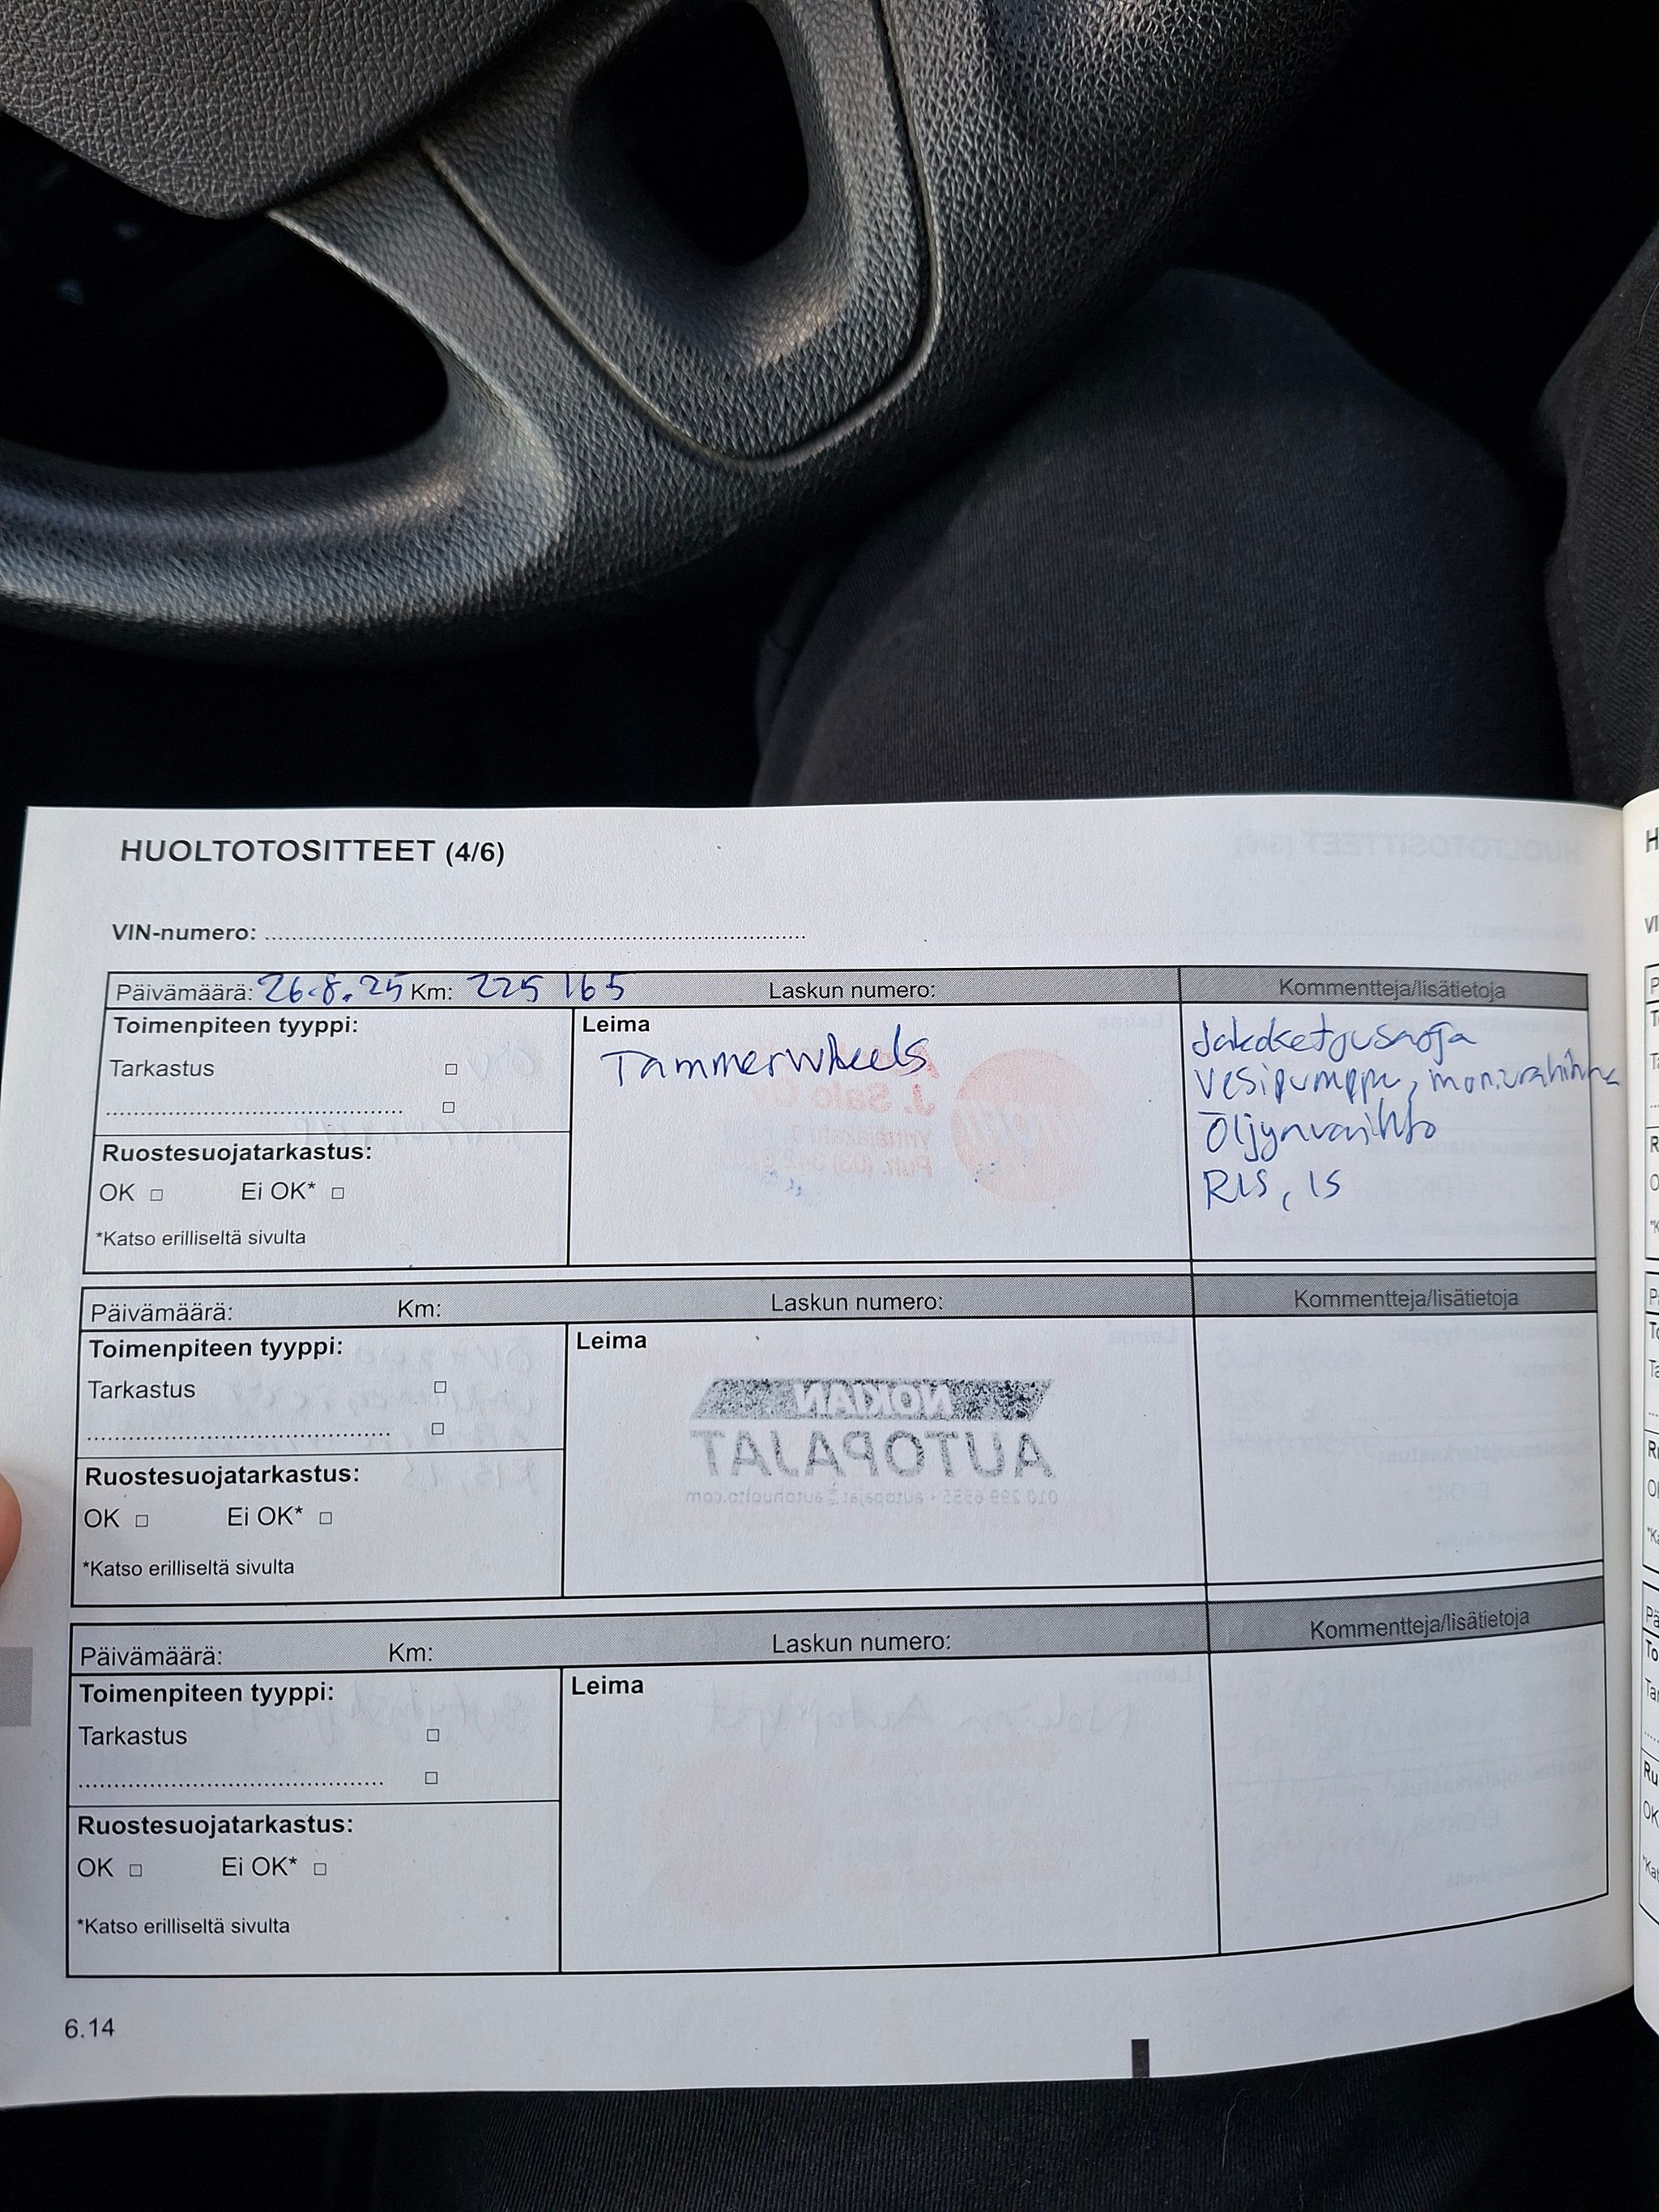 HUOLTOTOSITTEET (4/6)
VIN-numero:
Päivämäärä: 26.8.25 Km: 225 165 Laskun numero: Kommentteja/lisätietoja
Toimenpiteen tyyppi:
Tarkastus
Ruostesuojatarkastus:
OK Ei OK*
*Katso erilliseltä sivulta
Leima
Tammerwheels
Jakoketjusarja
Vesipumppu, moniurahihna
Öljynvaihto
RIS, IS
Päivämäärä: Km: Laskun numero: Kommentteja/lisätietoja
Toimenpiteen tyyppi:
Tarkastus
Ruostesuojatarkastus:
OK Ei OK*
*Katso erilliseltä sivulta
Leima
NOKIAN
AUTOPAJAT
Päivämäärä: Km: Laskun numero: Kommentteja/lisätietoja
Toimenpiteen tyyppi:
Tarkastus
Ruostesuojatarkastus:
OK Ei OK*
*Katso erilliseltä sivulta
Leima
6.14